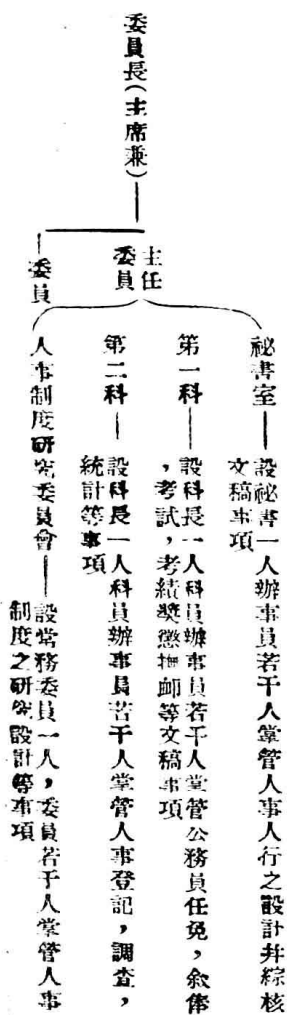 委員長(主席兼)
主任
委員
委員
祕書室
設祕書一人辦事員若干人掌管人事人行之設計幷綜核
文稿事項
第一科
設科長一人科員辦事員若干人掌管公務員任免,敘俸
,考試,考績獎懲撫師等文稿事項
第二科
設科長一人科員辦事員若干人掌管人事登記,調查,
統計等事項
人事制度研究委員會
設常務委員一人,委員若干人掌管人事
制度之研究設計等事項